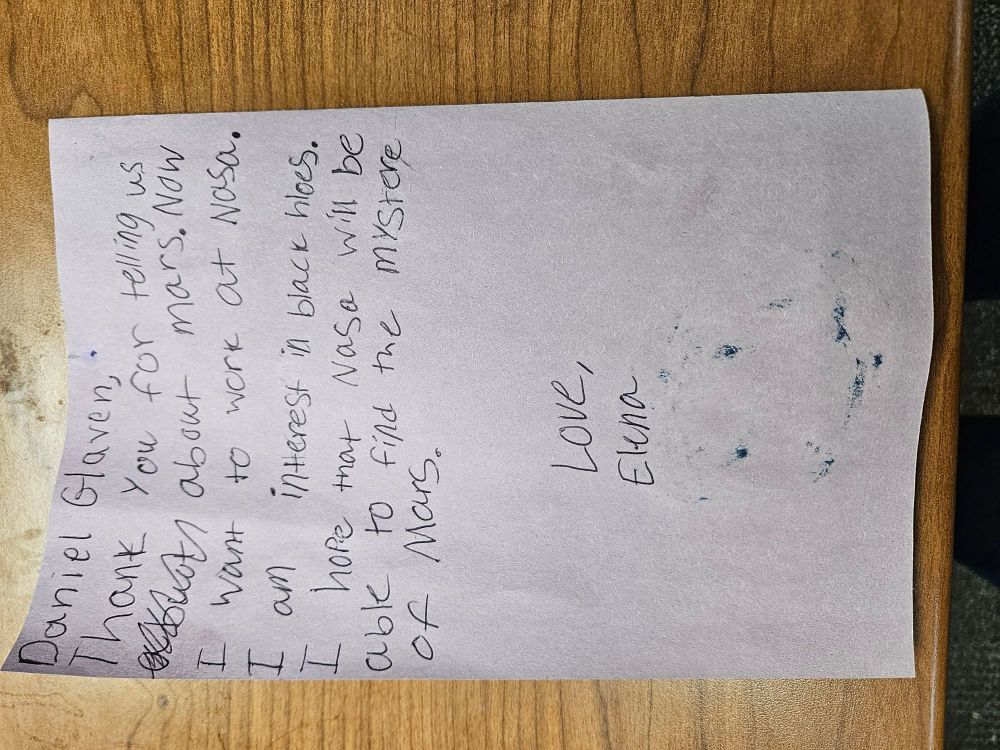 Daniel Glaven,
Thank you for telling us
about mars. Now
I want to work at Nasa.
I am interest in black hloes.
I hope that Nasa will be
able to find the mystere
of Mars.
Love,
Elena